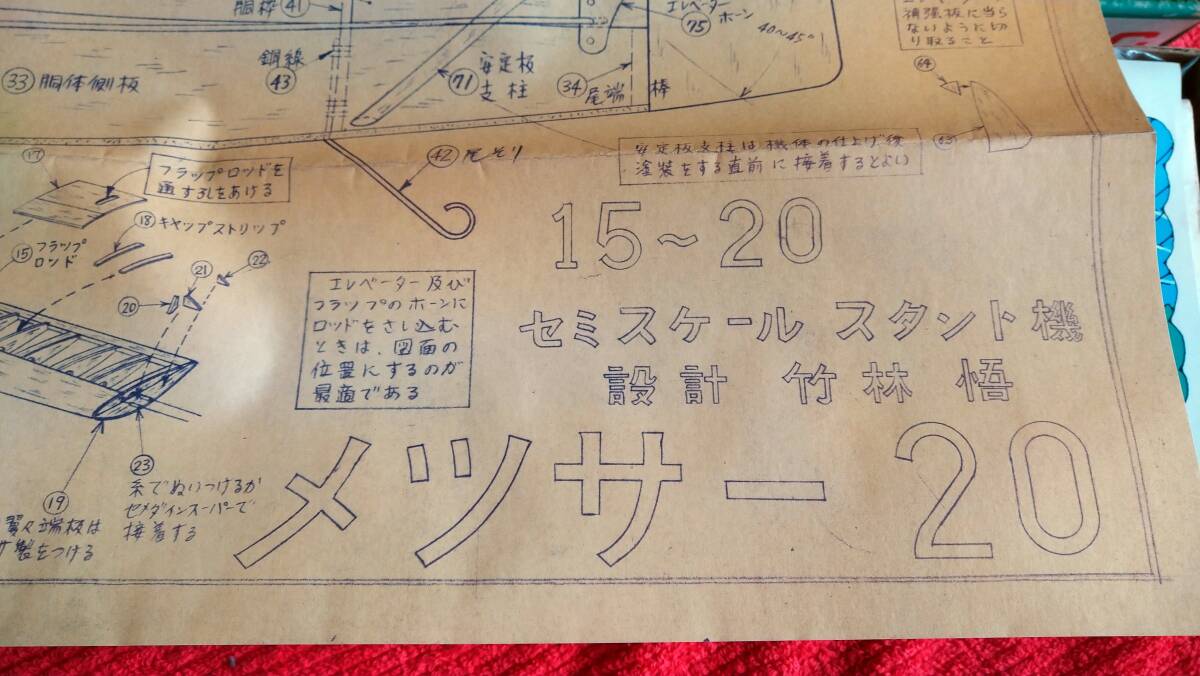 胴枠 41
エレベーター
75 ホーン
40~45°
補強板に当ら
ないように切
り取ること
鋼線
43
33 胴体側板
71 安定板
支柱
34 尾端 棒
64
63
42 尾そり
安定板支柱は機体の仕上げ後
塗装をする直前に接着するとよい
17
フラップロッドを
通す孔をあける
18 キャップストリップ
15 フラップ
ロンド
20
21
22
エレベーター及び
フラップのホーンに
ロッドをさし込む
ときは、図面の
位置にするのが
最適である
15~20
セミスケール スタント機
設計 竹林 悟
メッサー 20
23
糸でぬいつけるか
セメダインスーパーで
接着する
19
翼々端板は
製をつける